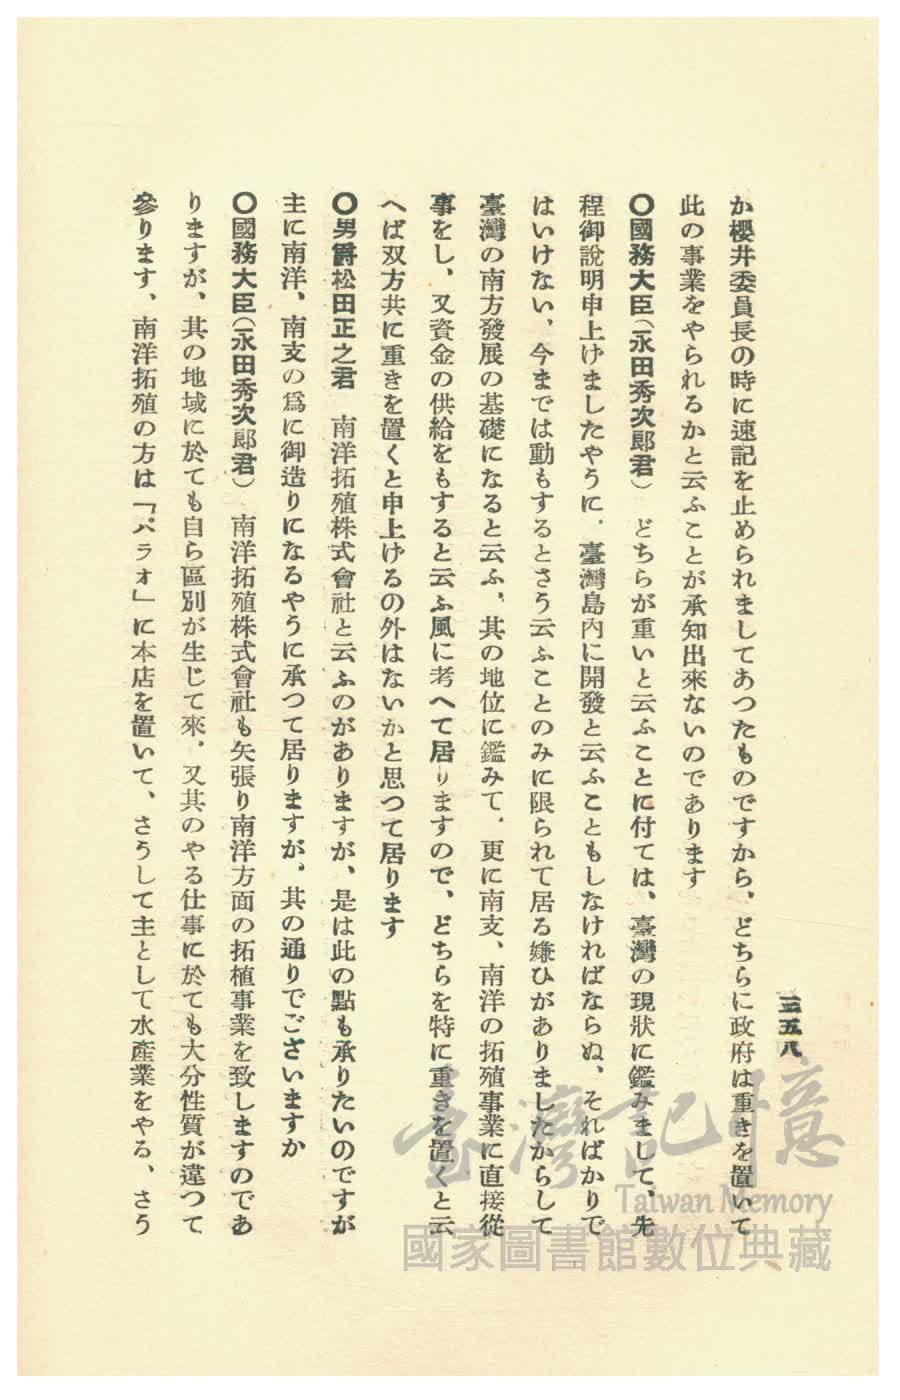 三五八
か櫻井委員長の時に速記を止められましてあつたものですから、どちらに政府は重きを置いて
此の事業をやられるかと云ふことが承知出來ないのであります
〇國務大臣(永田秀次郞君) どちらが重いと云ふことに付ては、臺灣の現狀に鑑みまして、先
程御說明申上げましたやうに、臺灣島內に開發と云ふこともしなければならぬ、そればかりで
はいけない、今までは動もするとさう云ふことのみに限られて居る嫌ひがありましたからして
臺灣の南方發展の基礎になると云ふ、其の地位に鑑みて、更に南支、南洋の拓殖事業に直接從
事をし、又資金の供給をもすると云ふ風に考へて居りますので、どちらを特に重きを置くと云
へば双方共に重きを置くと申上げるの外はないかと思つて居ります
〇男爵松田正之君 南洋拓殖株式會社と云ふのがありますが、是は此の點も承りたいのですが
主に南洋、南支の爲に御造りになるやうに承つて居りますが、其の通りでございますか
〇國務大臣(永田秀次郞君) 南洋拓殖株式會社も矢張り南洋方面の拓植事業を致しますのであ
りますが、其の地域に於ても自ら區別が生じて來、又其のやる仕事に於ても大分性質が違つて
參ります、南洋拓殖の方は「パラオ」に本店を置いて、さうして主として水產業をやる、さう
臺灣記憶
Taiwan Memory
國家圖書館數位典藏